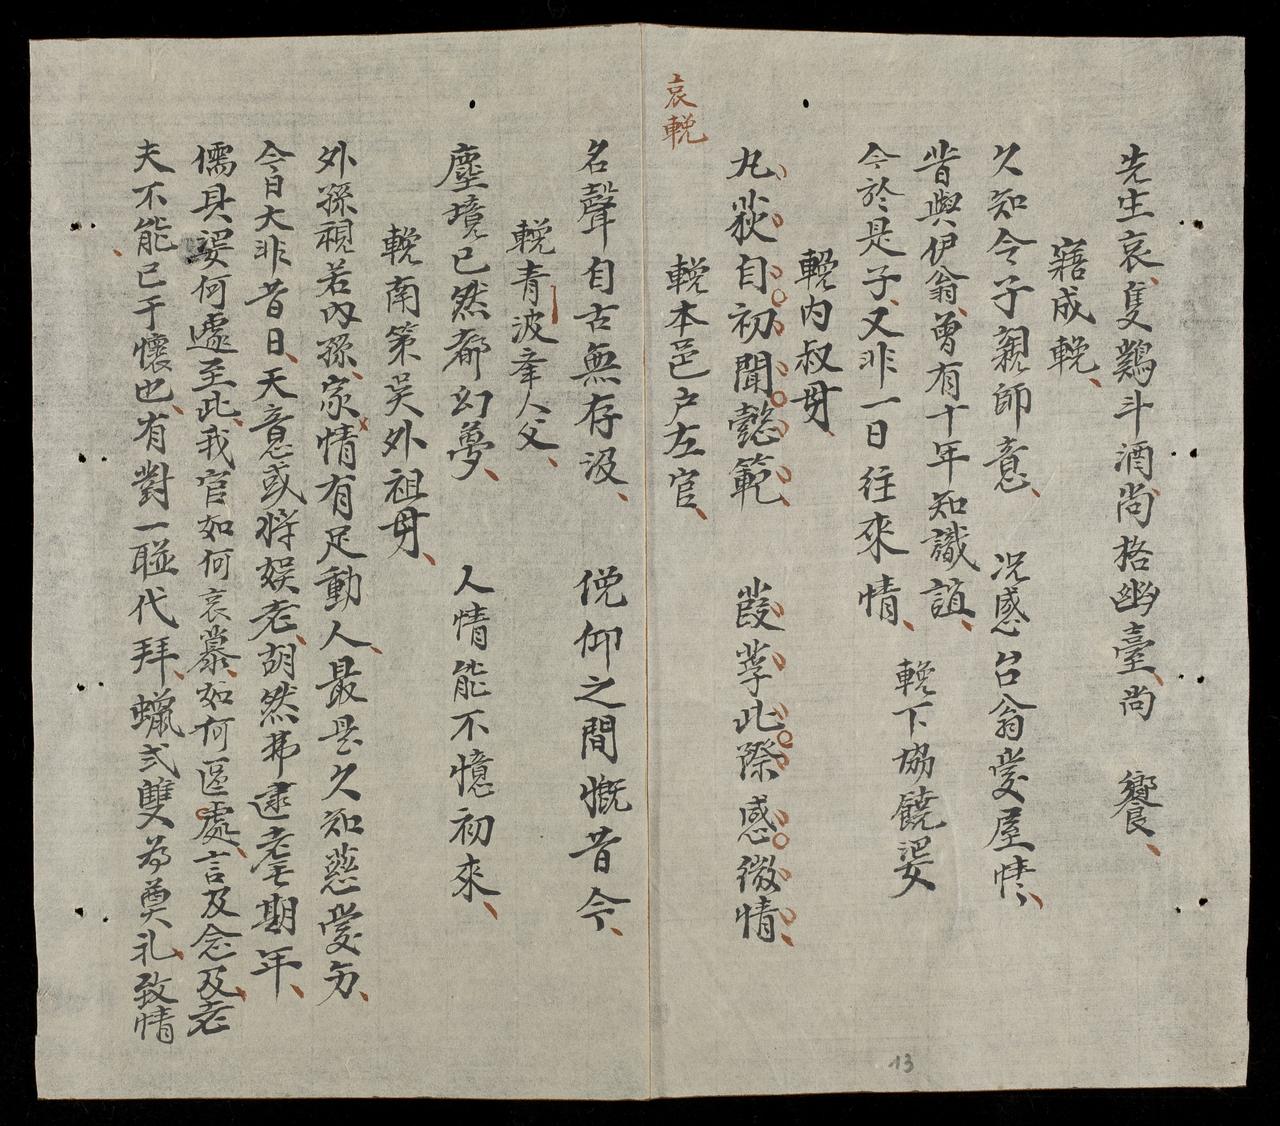 先生哀隻鷄斗酒尚格幽臺尚 饗
寤成輓
久知令子親師意 况感台翁愛屋情
昔與伊翁曾有十年知識誼
今於是子又非一日往來情
輓下協饒娑
輓内叔母
九荻自初聞懿範 葭莩此際感微情
哀輓
輓本邑户左官
名聲自古無存汲 俛仰之間慨昔今
輓青波牽人父
塵境已然都幻夢 人情能不憶初來
輓南策吴外祖母
外孫視若内孫家情有足動人最是久知慈愛勿
今日大非昔日天意或將娱老胡然弗逮耄期年
儒具娑何處至此我官如何哀慕如何區處言及念及老
夫不能已于懷也有對一聮代拜蠟弍雙為奠礼致情
13